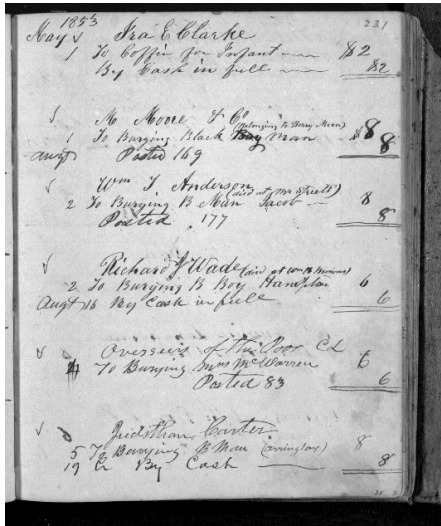 1853 231
May Ira E Clarke
1 To Coffin for Infant $2
By Cash in full $2
M Moore & Co
(belonging to Henry Moon)
1 To Burying Black Man $8
Augt Posted 169 8
Wm T Anderson
(died at Mr
2 To Burying B Man Jacob 8
Posted 177 8
Richard J Wade (died at Wm B
2 To Burying B Boy Hampton 6
Augt 16 By Cash in full 6
Overseers of the Poor Cd
4 To Burying Mrs McWarren 6
Posted 83 6
Carter
5 To Burying B Man (Arrington) 8
19 Cr By Cash 8